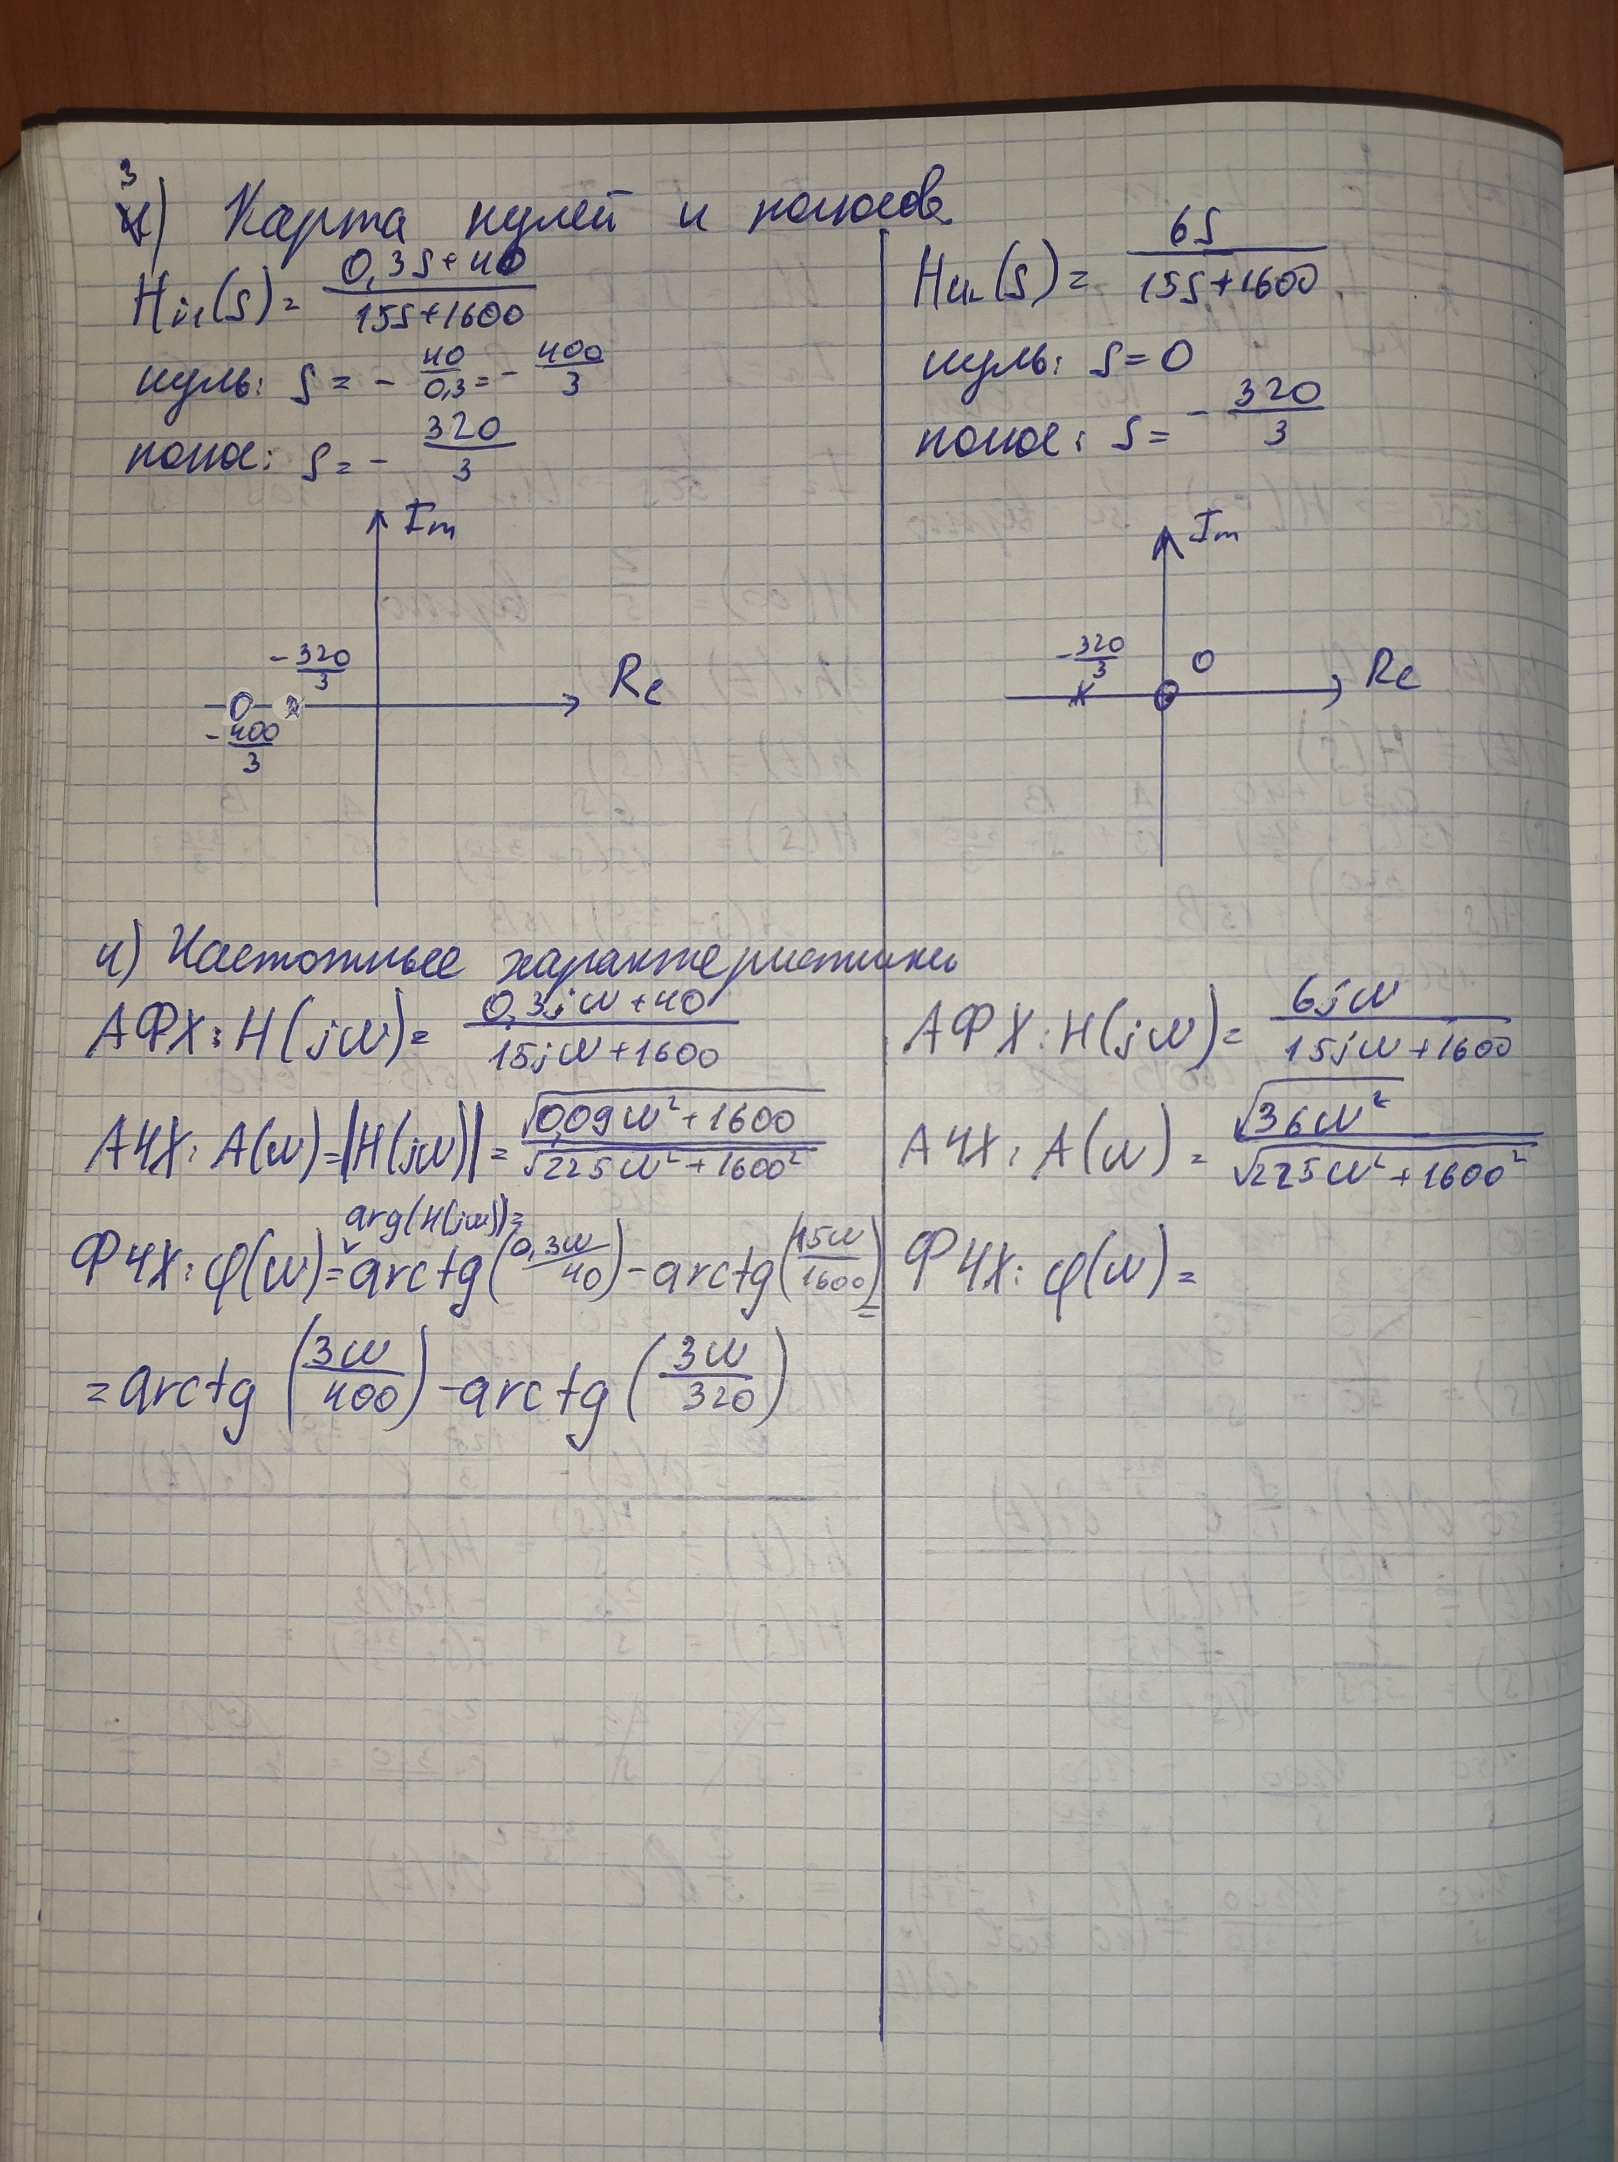 3) Карта нулей и полюсов
H_{i1}(s) = \frac{0,3s+40}{15s+1600}
нуль: s = -\frac{40}{0,3} = -\frac{400}{3}
полюс: s = -\frac{320}{3}
Im
-\frac{320}{3}
Re
-\frac{400}{3}
H_{UL}(s) = \frac{6s}{15s+1600}
нуль: s = 0
полюс: s = -\frac{320}{3}
Im
-\frac{320}{3} 0
Re
4) Частотные характеристики
АФХ: H(jω) = \frac{0,3jω+40}{15jω+1600}
АЧХ: A(ω) = |H(jω)| = \frac{\sqrt{0,09ω²+1600}}{\sqrt{225ω²+1600²}}
arg(H(jω))=
ФЧХ: φ(ω) = arctg(\frac{0,3ω}{40}) - arctg(\frac{15ω}{1600}) =
= arctg(\frac{3ω}{400}) - arctg(\frac{3ω}{320})
АФХ: H(jω) = \frac{6jω}{15jω+1600}
АЧХ: A(ω) = \frac{\sqrt{36ω²}}{\sqrt{225ω²+1600²}}
ФЧХ: φ(ω) =